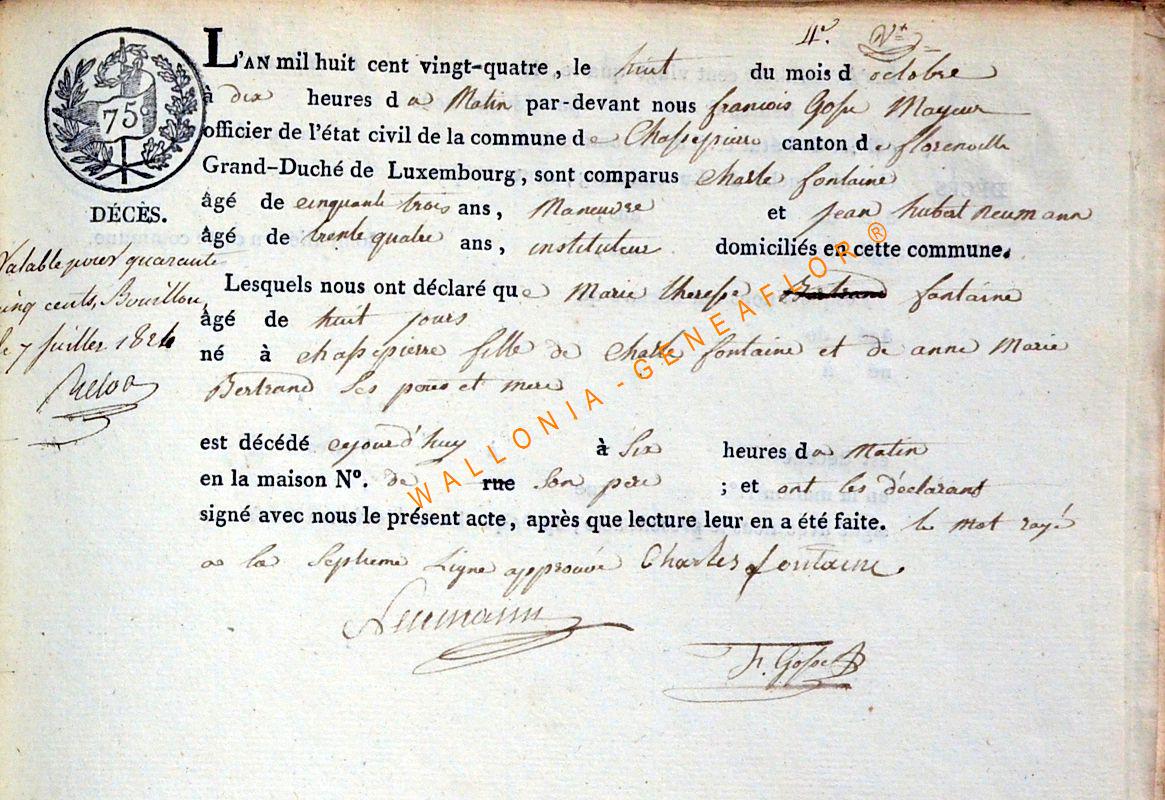 4e. Vu
L'AN mil huit cent vingt-quatre, le huit du mois d'octobre
à dix heures du Matin par-devant nous francois Gosse Mayeur
officier de l'état civil de la commune de Chassepierre canton de florenville
Grand-Duché de Luxembourg, sont comparus Charle fontaine
âgé de cinquante trois ans, Maneuvre et Jean hubert Neumann
âgé de trente quatre ans, instituteur domiciliés en cette commune.
Lesquels nous ont déclaré que Marie theresse Bertrand fontaine
âgé de huit jours
né à chassepierre fille de Charle fontaine et de anne Marie
Bertrand Ses peres et mere
est décédé cejourd'huy à Six heures du Matin
en la maison N°. de rue Son pere ; et ont les déclarant
signé avec nous le présent acte, après que lecture leur en a été faite. le mot rayé
a la Septieme Ligne approuvé Charles fontaine
Neumann
fr. Gosse
75c
DÉCÈS.
Valable pour quarante
cinq cents, Bouillon
le 7 Juillet 1824
WALLONIA-GENEAFLOR ®